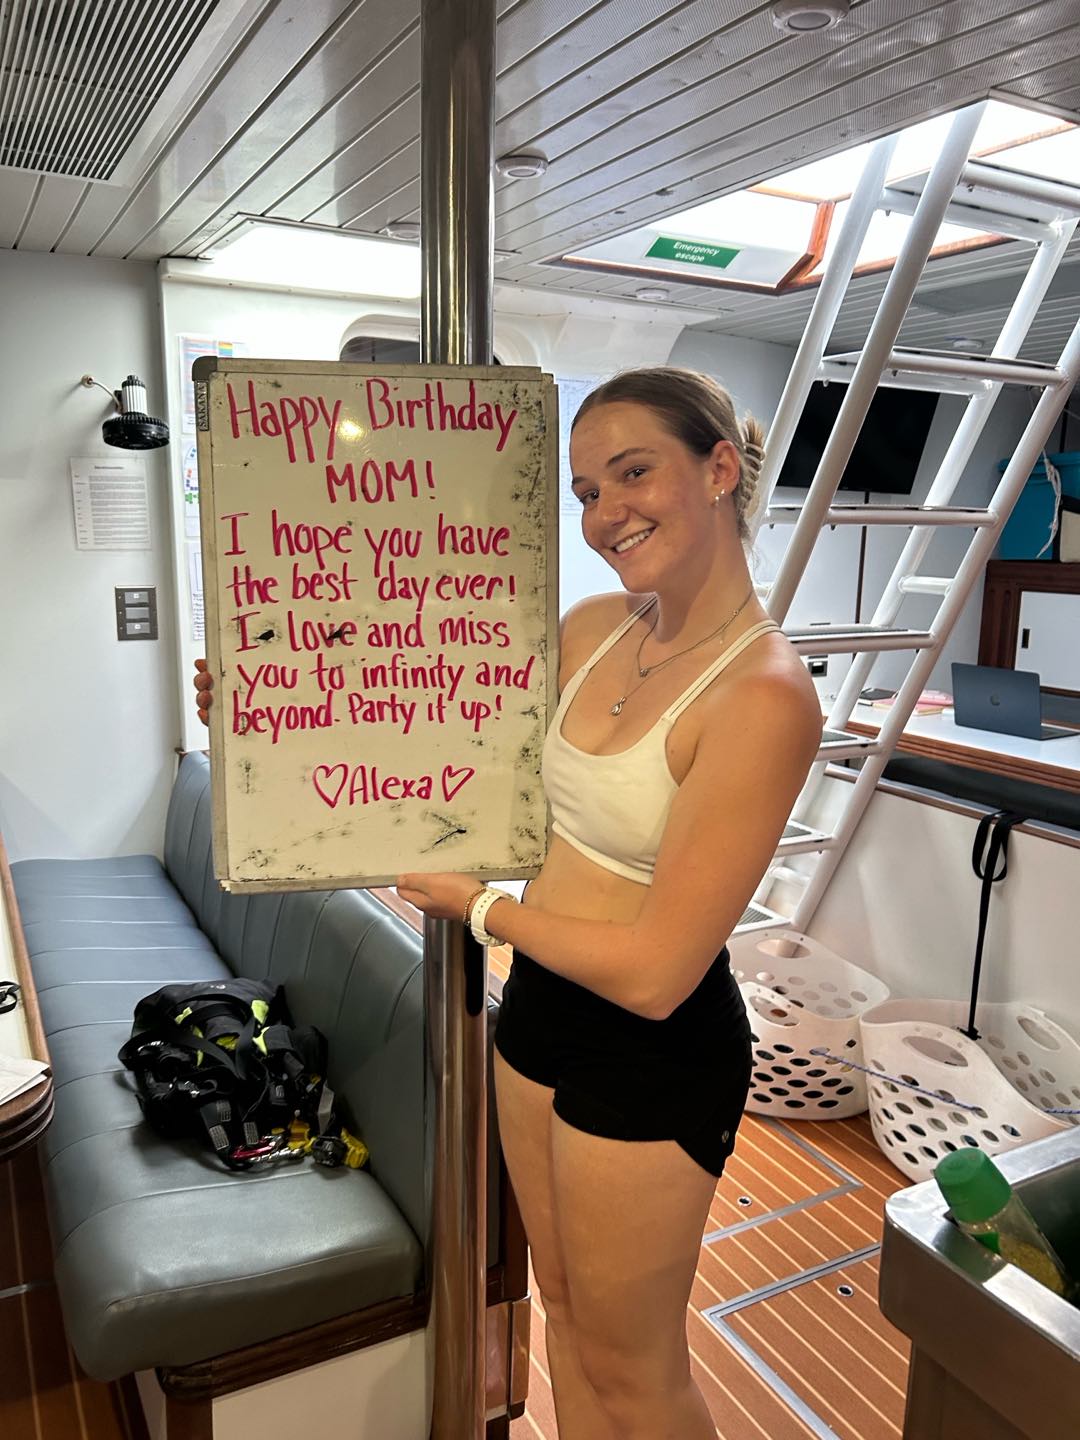 Happy Birthday
MOM!
I hope you have
the best day ever!
I love and miss
you to infinity and
beyond. Party it up!
♡Alexa♡
Emergency
escape